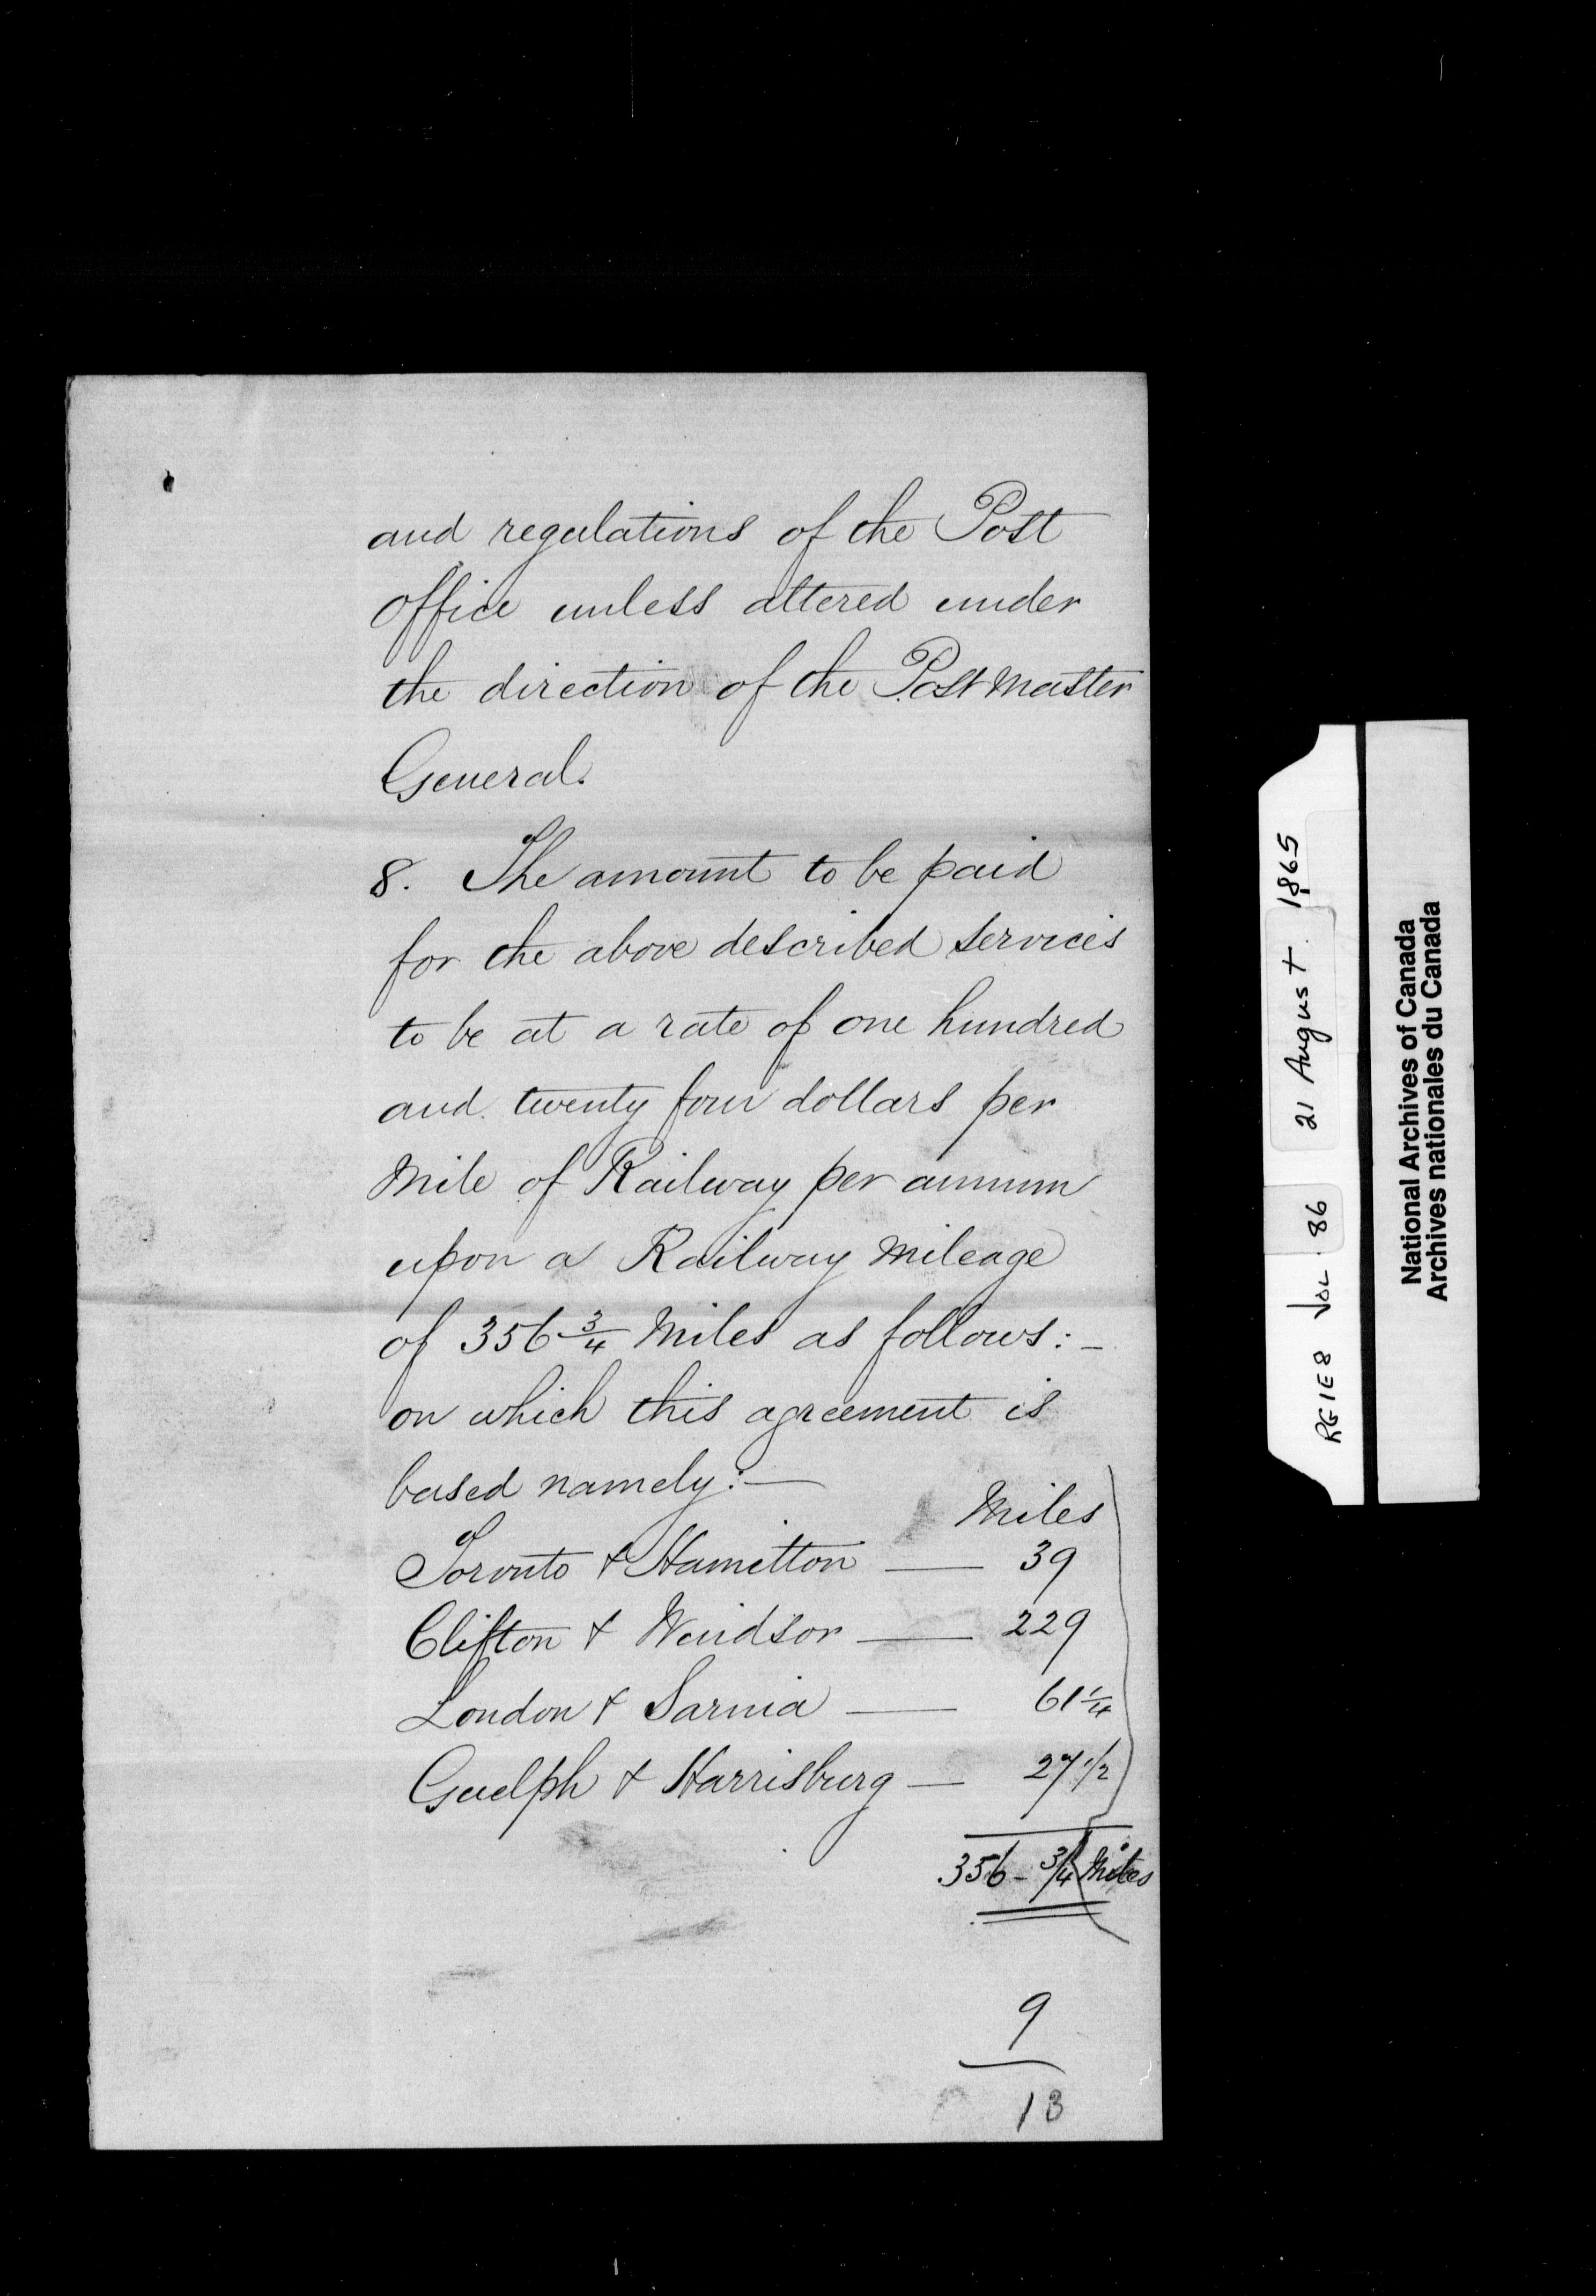 and regulations of the Post
Office unless altered under
the direction of the Post Master
General.
8. The amount to be paid
for the above described services
to be at a rate of one hundred
and twenty four dollars per
Mile of Railway per annum
upon a Railway Mileage
of 356 3/4 Miles as follows:-
on which this agreement is
based namely:-
Miles
Toronto & Hamilton — 39
Clifton & Windsor — 229
London & Sarnia — 61 1/4
Guelph & Harrisburg — 27 1/2
356 - 3/4 Miles
9
13
RG1E8 VOL. 86 21 August 1865
National Archives of Canada
Archives nationales du Canada